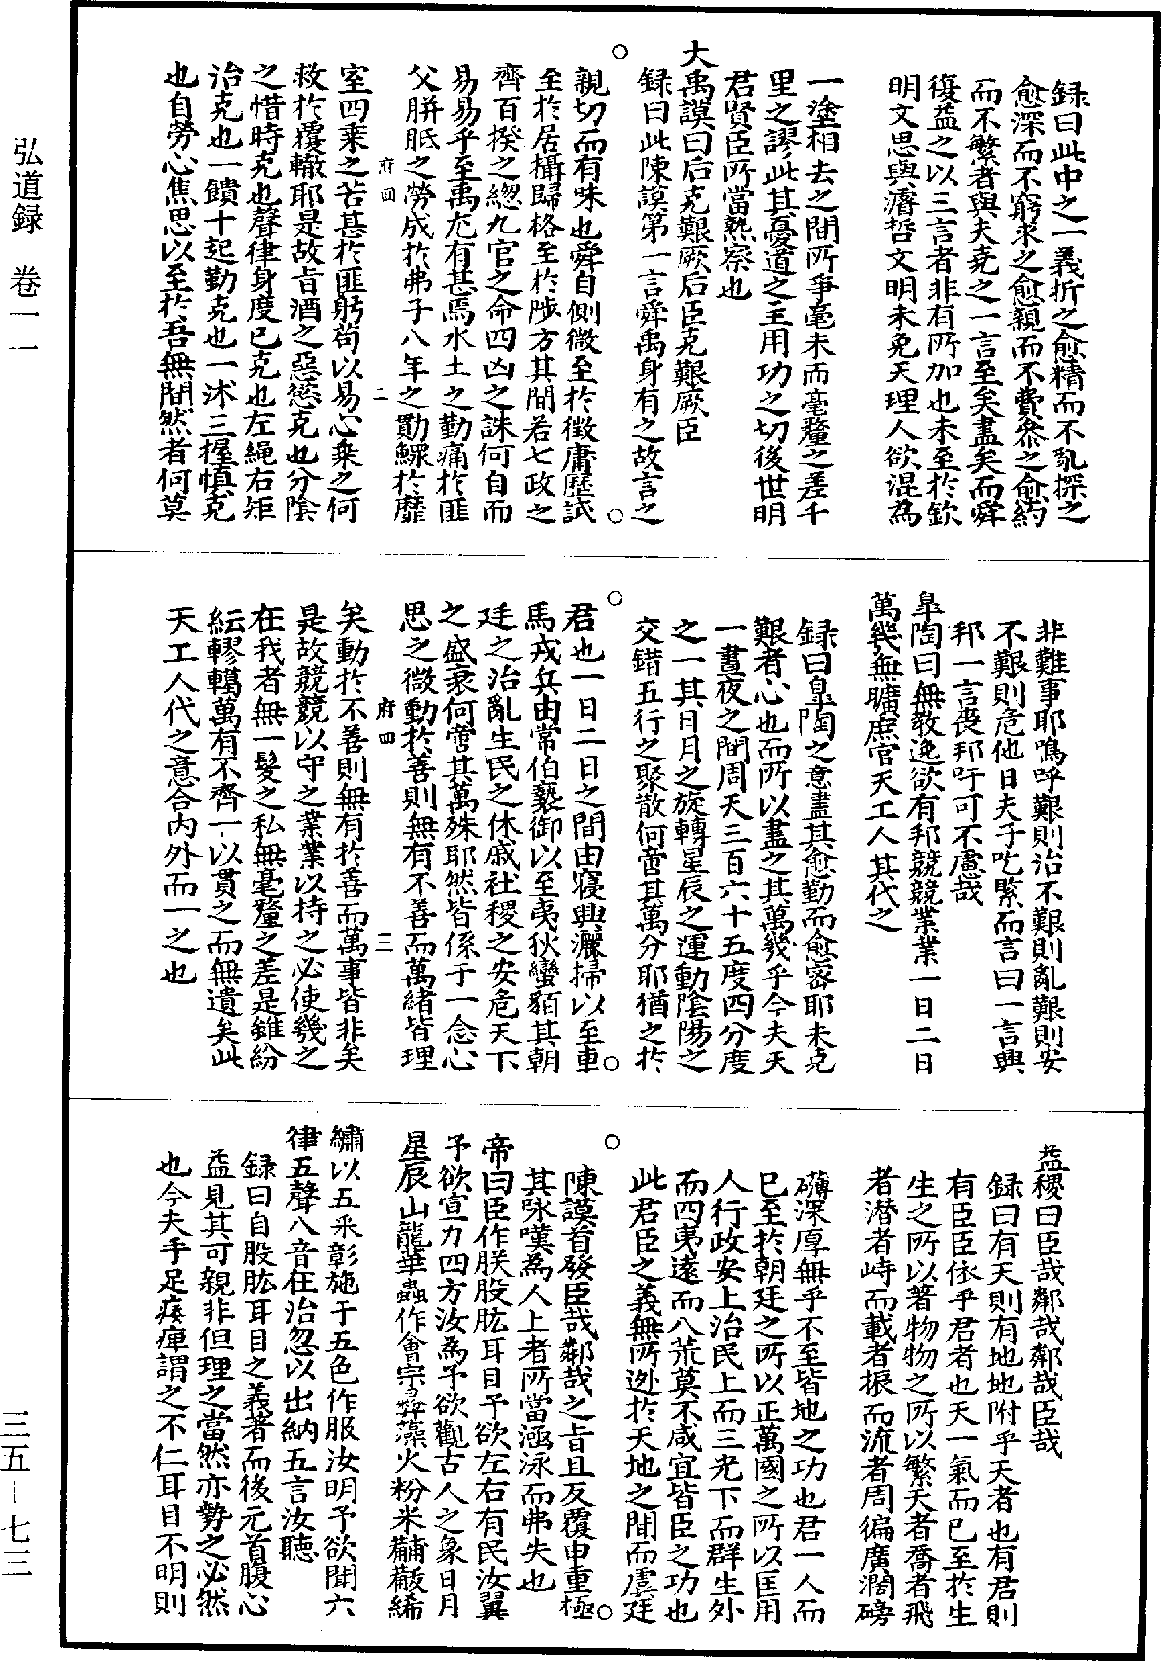 弘道録 卷一一
三五－七三
録曰此中之一義折之愈精而不亂探之
愈深而不窮求之愈親而不費叅之愈約
而不繁者與夫堯之一言至矣盡矣而舜
復益之以三言者非有所加也未至於欽
明文思與濬哲文明未免天理人欲混為
一塗相去之間所爭毫末而毫釐之差千
里之謬此其憂道之主用功之切後世明
君賢臣所當熟察也
大禹謨曰后克艱厥后臣克艱厥臣
録曰此陳謨第一言舜禹身有之故言之
親切而有味也舜自側微至於徵庸歷試
至於居攝歸格至於陟方其間若七政之
齊百揆之總九官之命四凶之誅何自而
易易乎至禹尤有甚焉水土之勤痛於匪
父胼胝之勞成於弗子八年之勩鰥於靡
府四 二
室四乘之苦甚於匪躬苟以易心乘之何
救於覆轍耶是故旨酒之惡愆克也分陰
之惜時克也聲律身度已克也左繩右矩
治克也一饋十起勤克也一沐三握慎克
也自勞心焦思以至於吾無間然者何莫
非難事耶嗚呼艱則治不艱則亂艱則安
不艱則危他日夫子吃緊而言曰一言興
邦一言喪邦吁可不慮哉
皐陶曰無教逸欲有邦兢兢業業一日二日
萬幾無曠庶官天工人其代之
録曰皐陶之意盡其愈勤而愈密耶未克
艱者心也而所以盡之其萬幾乎今夫天
一晝夜之間周天三百六十五度四分度
之一其日月之旋轉星辰之運動陰陽之
交錯五行之聚散何啻其萬分耶猶之於
君也一日二日之間由寢興灑掃以至車
馬戎兵由常伯褻御以至夷狄蠻貊其朝
廷之治亂生民之休戚社稷之安危天下
之盛衰何啻其萬殊耶然皆係于一念心
思之微動於善則無有不善而萬緒皆理
府四 三
矣動於不善則無有於善而萬事皆非矣
是故兢兢以守之業業以持之必使幾之
在我者無一髮之私無毫釐之差是雖紛
紜轇轕萬有不齊一以貫之而無遺矣此
天工人代之意合內外而一之也
益稷曰臣哉鄰哉鄰哉臣哉
録曰有天則有地地附乎天者也有君則
有臣臣依乎君者也天一氣而已至於生
生之所以著物物之所以繁夭者喬者飛
者潛者峙而載者振而流者周徧廣濶磅
礴深厚無乎不至皆地之功也君一人而
已至於朝廷之所以正萬國之所以匡用
人行政安上治民上而三光下而群生外
而四夷遠而八荒莫不咸宜皆臣之功也
此君臣之義無所迯於天地之間而虞廷
陳謨首發臣哉鄰哉之旨且反覆申重極
其詠嘆為人上者所當涵泳而弗失也
帝曰臣作朕股肱耳目予欲左右有民汝翼
予欲宣力四方汝為予欲觀古人之象日月
星辰山龍華蟲作會宗彝藻火粉米黼黻絺
繡以五采彰施于五色作服汝明予欲聞六
律五聲八音在治忽以出納五言汝聽
録曰自股肱耳目之義著而後元首腹心
益見其可親非但理之當然亦勢之必然
也今夫手足痿痺謂之不仁耳目不明則